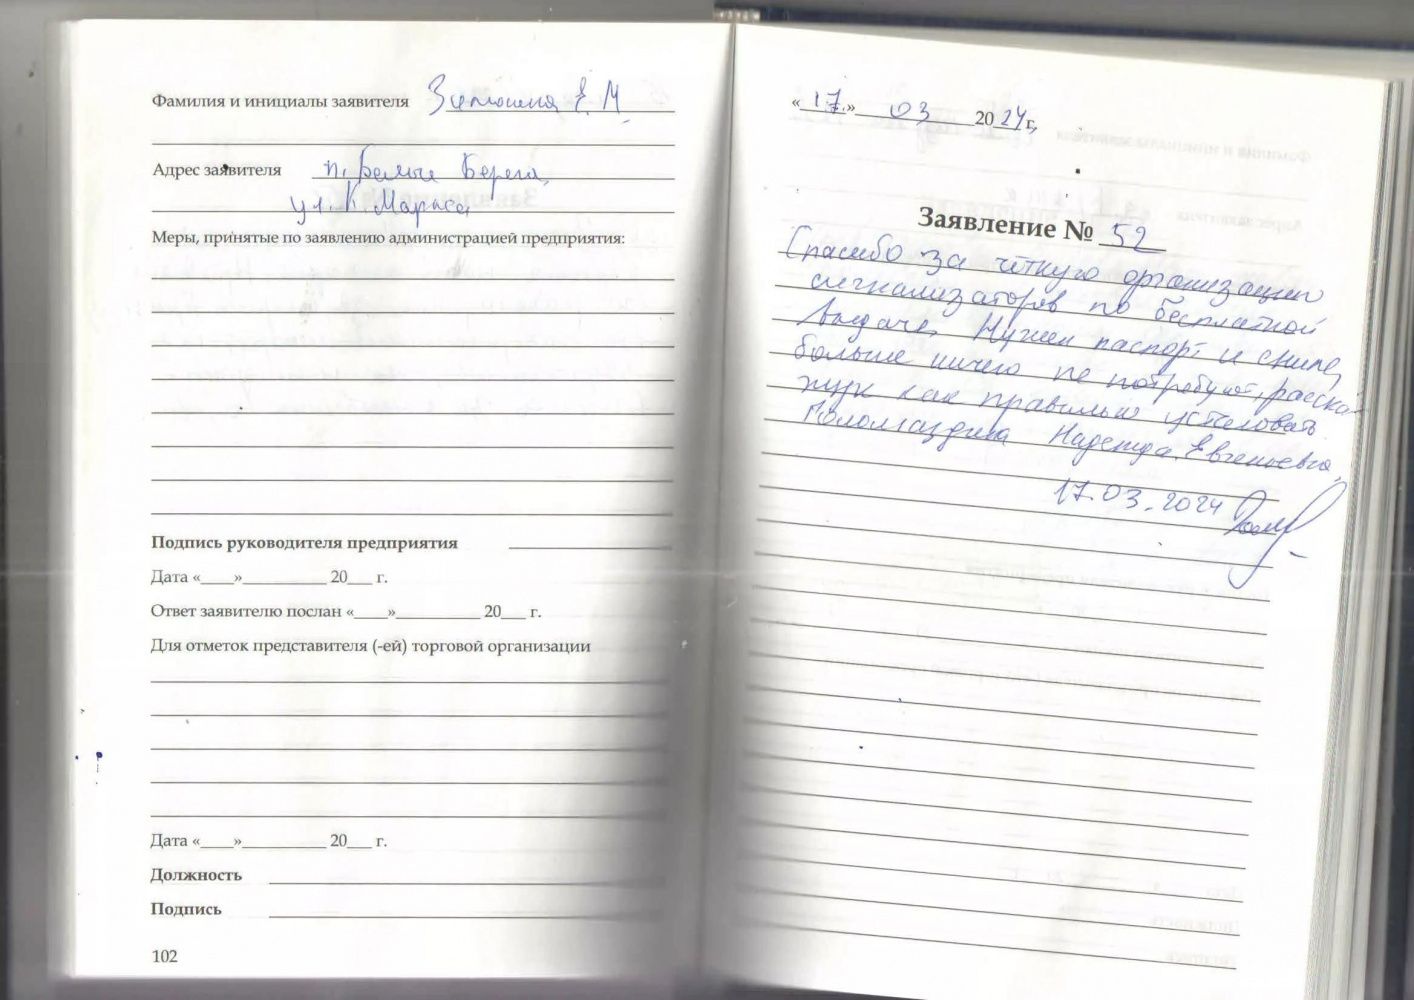 Фамилия и инициалы заявителя Е. М.
Адрес заявителя п. Белые Берега,
ул. К. Маркса
Меры, принятые по заявлению администрацией предприятия:
Подпись руководителя предприятия
Дата «____»__________ 20___ г.
Ответ заявителю послан «____»__________ 20___ г.
Для отметок представителя (-ей) торговой организации
Дата «____»__________ 20___ г.
Должность
Подпись
102
«17.» 03 2024 г.
Заявление № 52
Спасибо за чёткую организацию
сигнализаторов по бесплатной
выдаче. Нужен паспорт и снилс,
больше ничего не потребуют,
как правильно
Надежда Евгеньевна,
17.03.2024